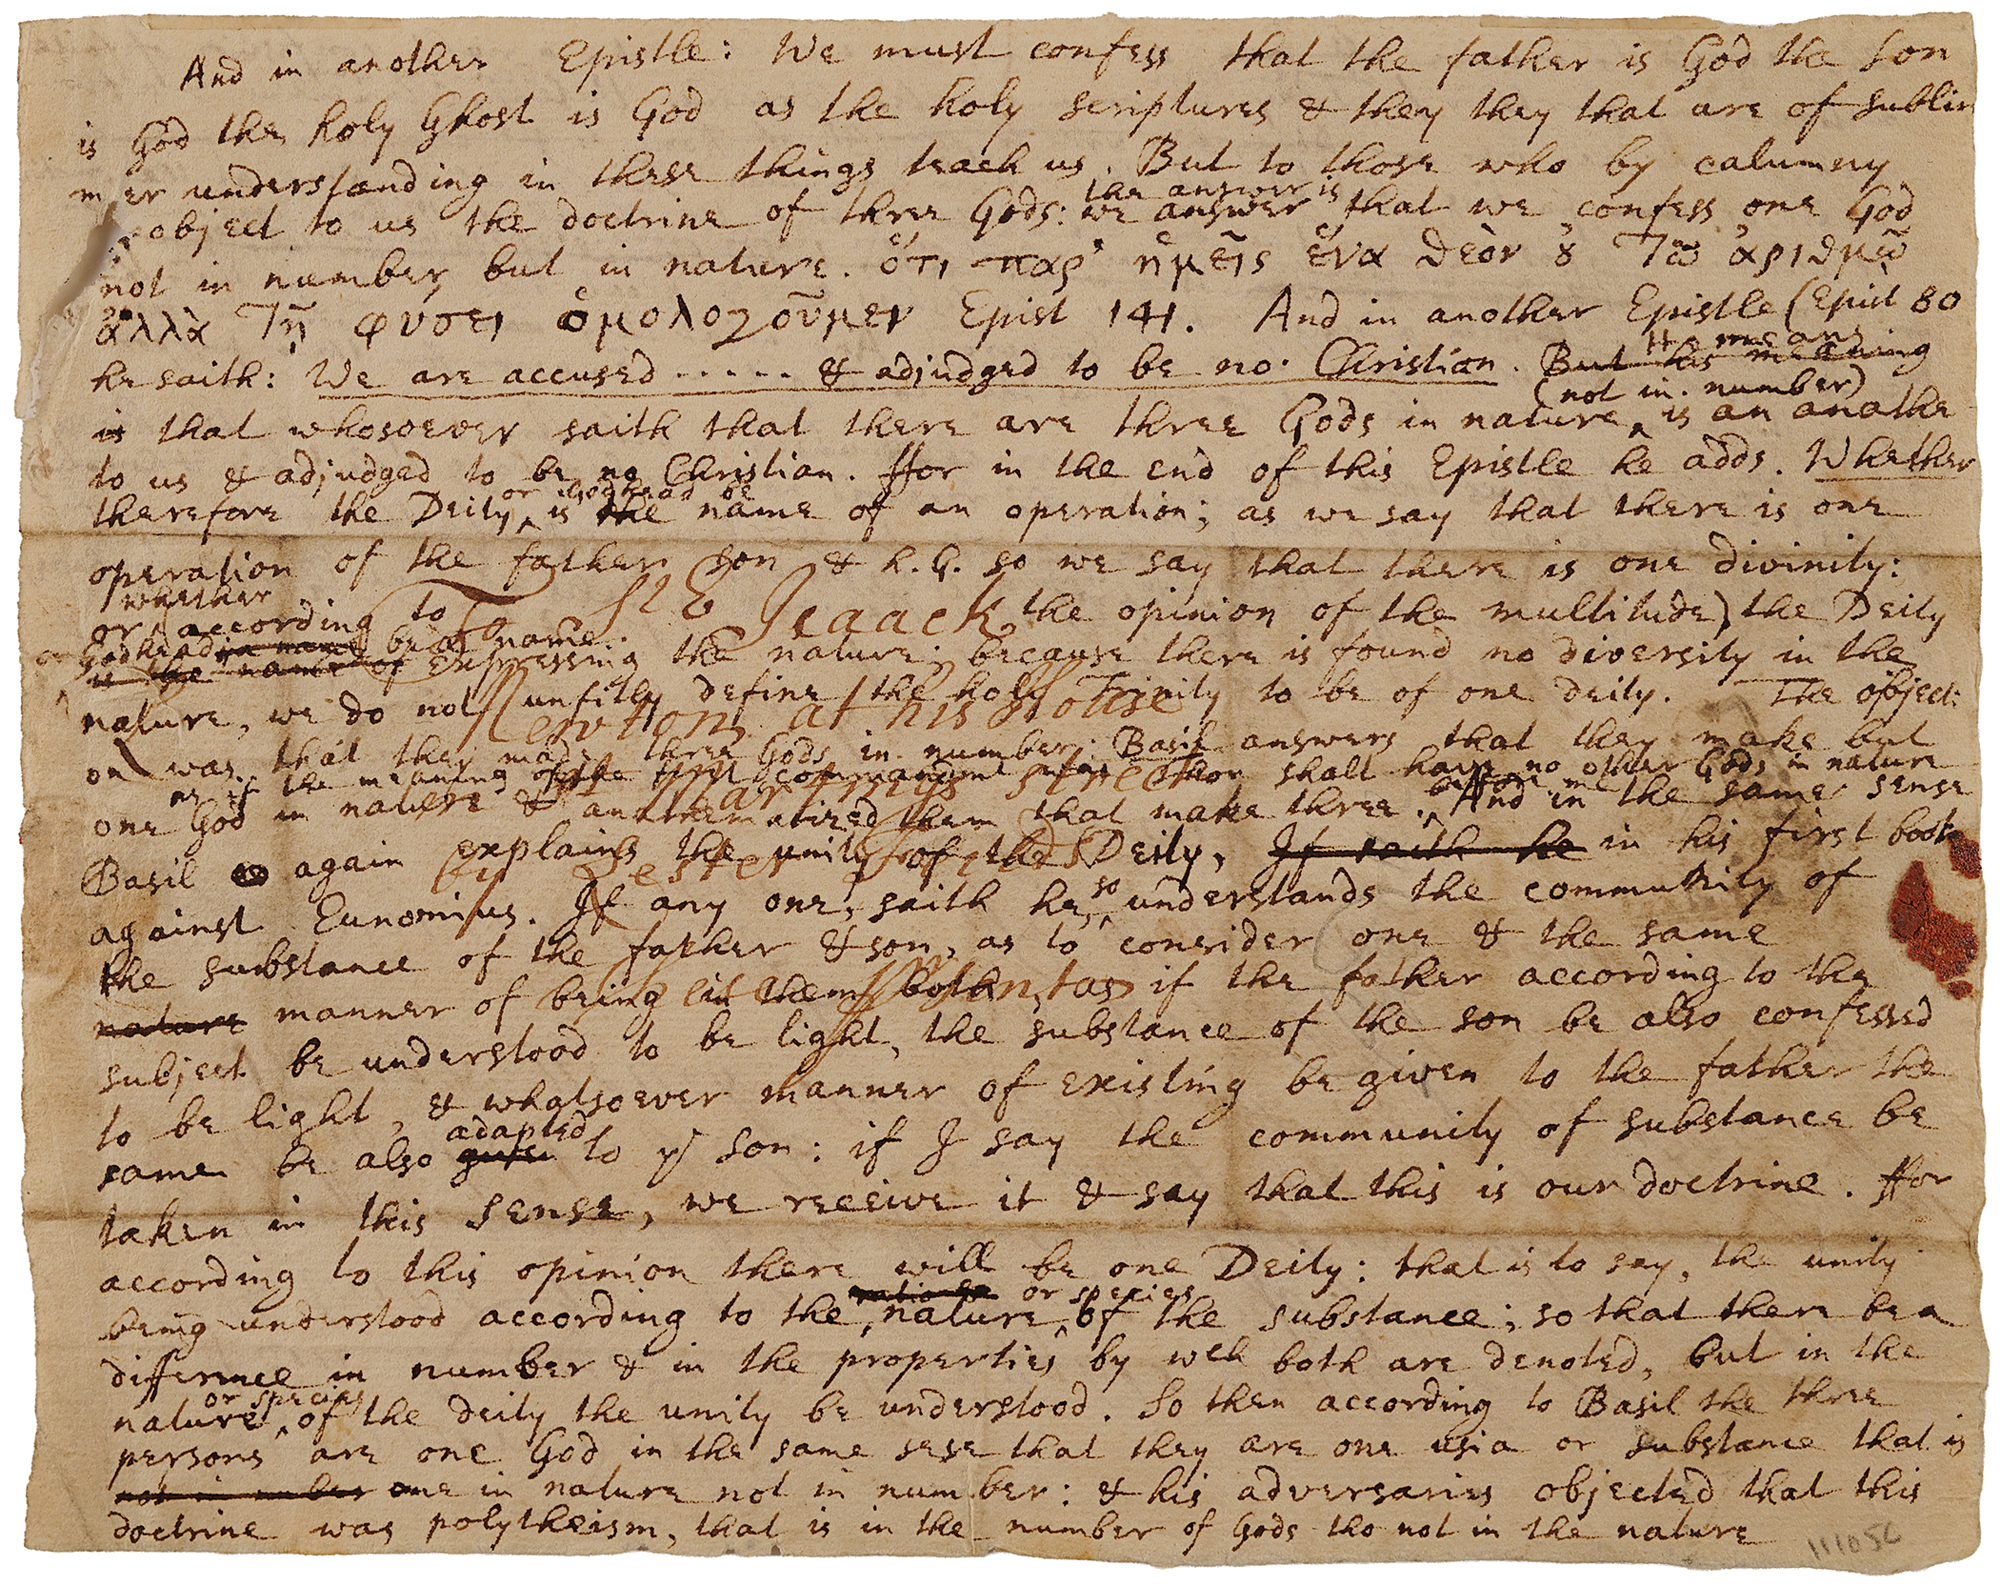 And in another Epistle: We must confess that the father is God the Son
is God the holy Ghost is God as the holy scriptures & they they that are of sublim
mer understanding in these things teach us. But to those who by calumny
the answer is
object to us the doctrine of three Gods: we answer that we confess one God
not in number but in nature. ὅτι παρ' ἡμεῖς ἕνα θεὸν ȣ τῷ ἀριθμῷ
ἀλλὰ τῇ φύσει ὁμολογοῦμεν Epist 141. And in another Epistle (Epist 80
He means
he saith: We are accused ..... & adjudged to be no Christian. But his meaning
(not in number)
is that whosoever saith that there are three Gods in nature is an anathe
to us & adjudged to be no Christian. ffor in the end of this Epistle he adds. Whether
or Godhead be
therefore the Deity is the name of an operation; as we say that there is one
operation of the father son & h. G. so we say that there is one divinity:
whether
or (according to the opinion of the multitude) the Deity
To Sr Isaack
or Godhead be a name
is the name of expressing the nature; because there is found no diversity in the
nature, we do not unfitly define the holy Trinity to be of one deity. The objecti
Newton at his House
on was that they made three Gods in number: Basil answers that they make but
the meaning of the first commandment were Thou shall have no other Gods in nature
before me
one God in nature & anathematized them that make three. And in the same sense
St Martins Street
Basil again explains the unity of the Deity, If saith he in his first book
Leester Fields
against Eunomius. If any one, saith he, so understands the community of
the substance of the father & son, as to consider one & the same
nature manner of being in them both, as if the father according to the
subject be understood to be light, the substance of the son be also confessed
to be light, & whatsoever manner of existing be given to the father the
adapted
same be also given to yᵉ son: if I say the community of substance be
taken in this sense, we receive it & say that this is our doctrine. ffor
according to this opinion there will be one Deity: that is to say, the unity
or species
being understood according to the nature of the substance; so that there be a
difference in number & in the properties by wch both are denoted, but in the
or species
nature of the deity the unity be understood. So then according to Basil the three
persons are one God in the same sese that they are one usia or substance that is
not in number one in nature not in number: & his adversaries objected that this
doctrine was polytheism, that is in the number of Gods tho not in the nature
111056